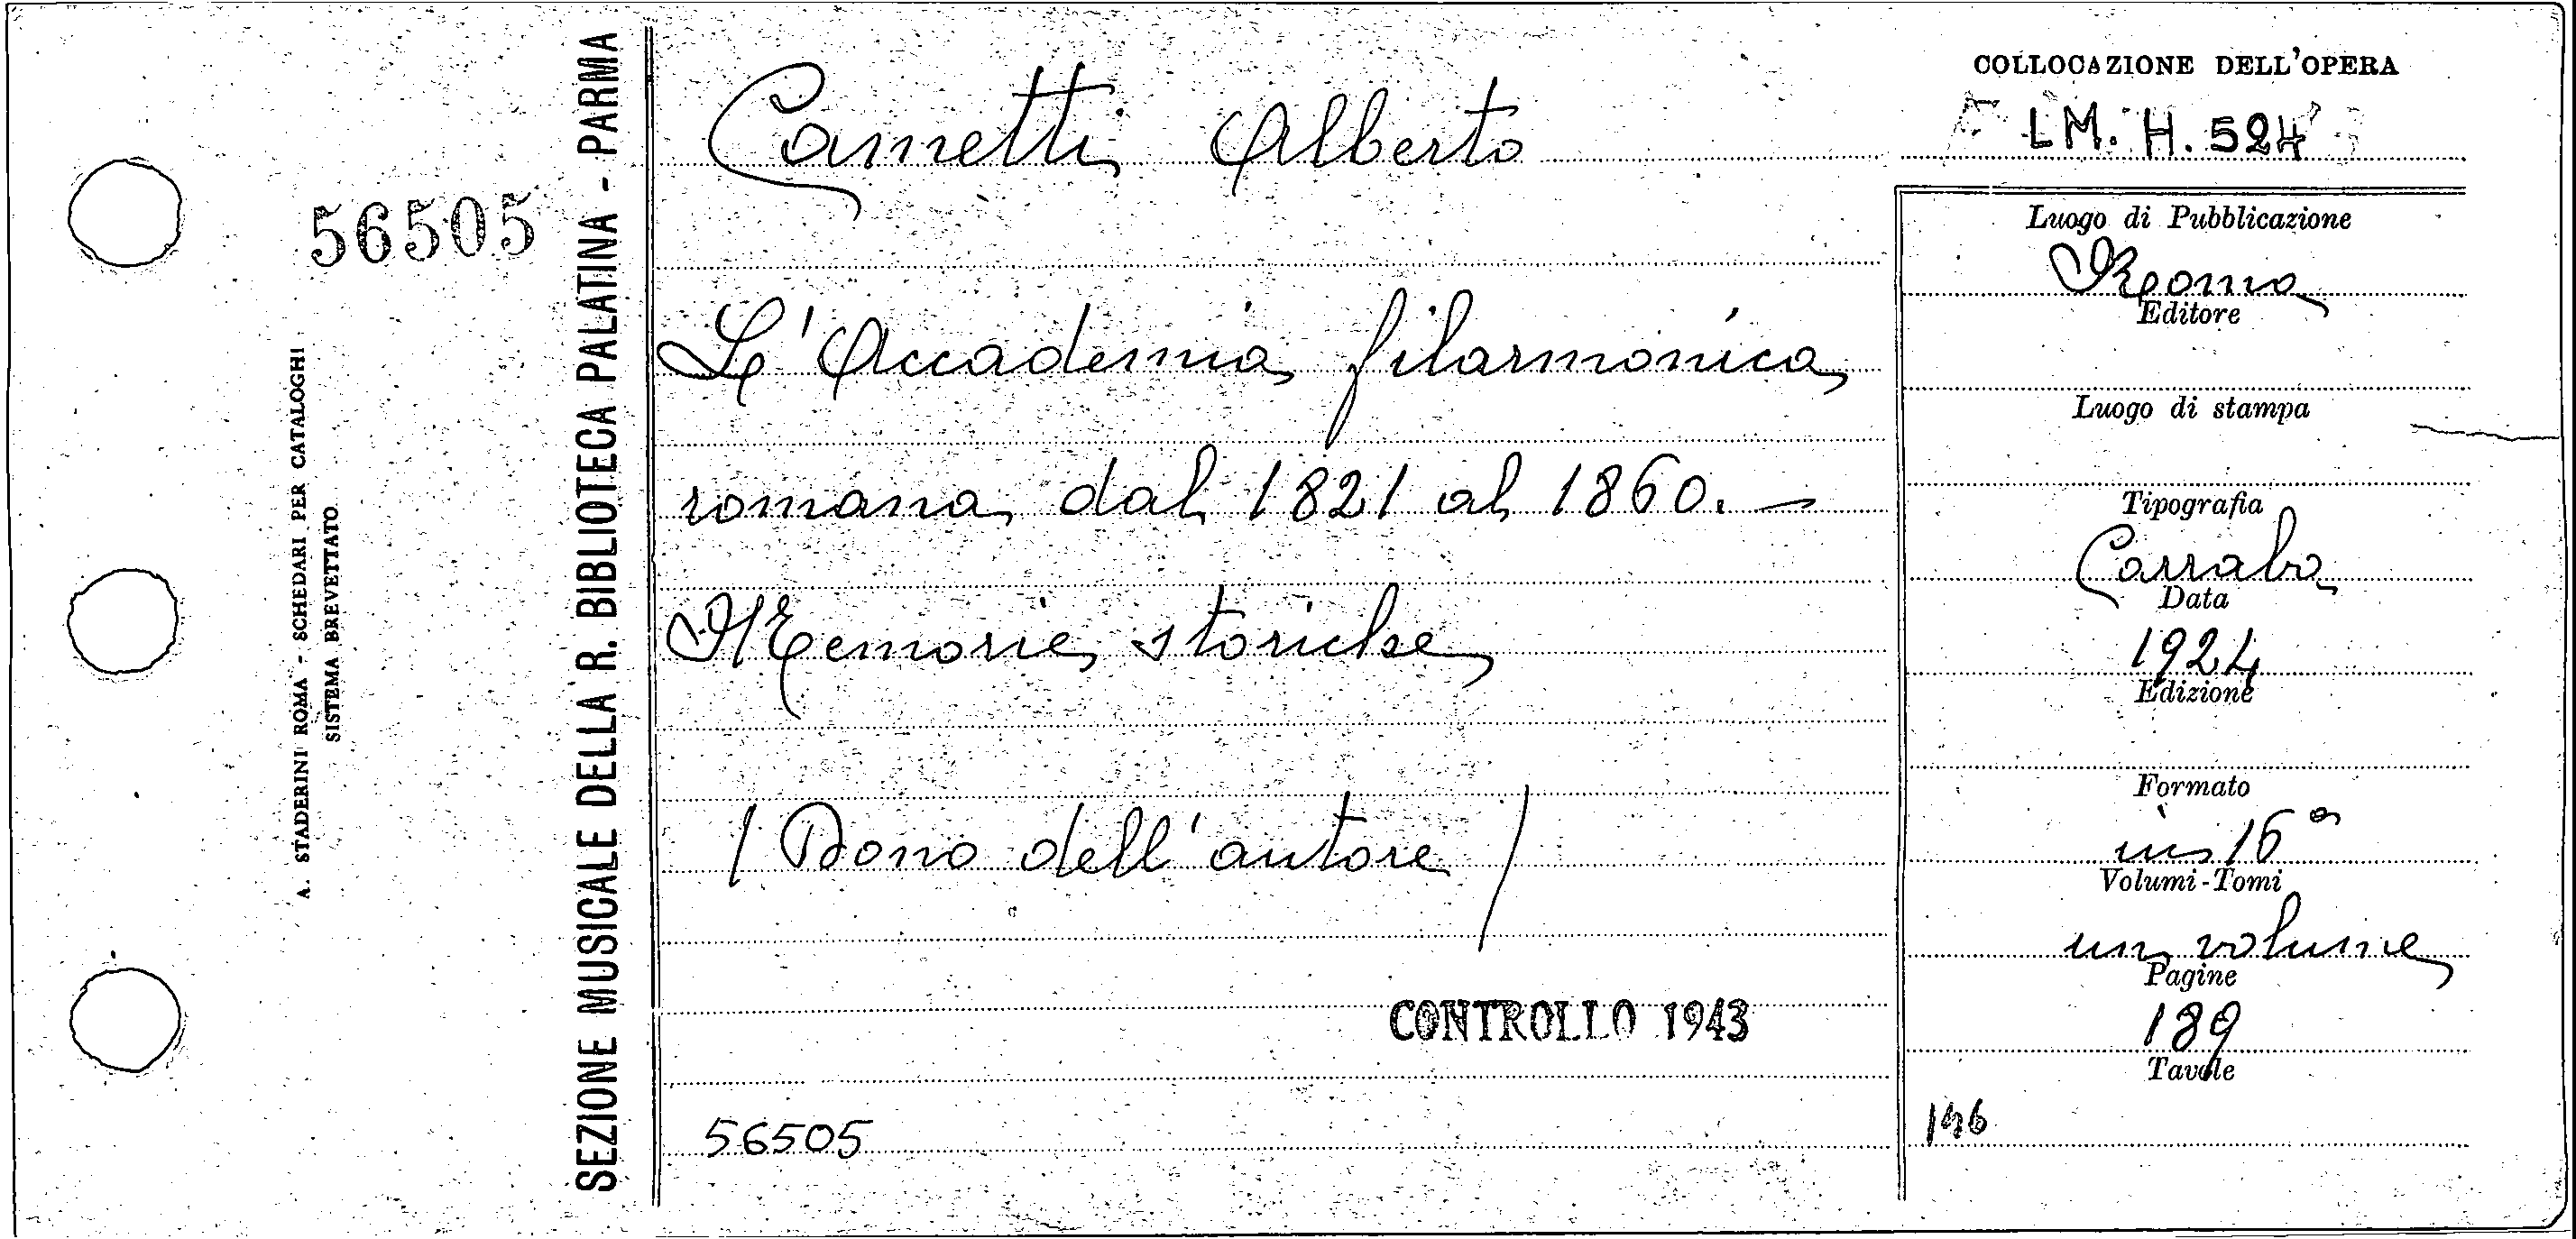 56505
A. STADERINI ROMA - SCHEDARI PER CATALOGHI
SISTEMA BREVETTATO
SEZIONE MUSICALE DELLA R. BIBLIOTECA PALATINA - PARMA
Cametti Alberto
L'Accademia filarmonica
romana dal 1821 al 1860. -
Memorie storiche
/ Dono dell'autore /
CONTROLLO 1943
56505
COLLOCAZIONE DELL'OPERA
LM. H. 524
Luogo di Pubblicazione
Roma
Editore
Luogo di stampa
Tipografia
Carraba
Data
1924
Edizione
Formato
in 16°
Volumi-Tomi
un volume
Pagine
189
Tavole